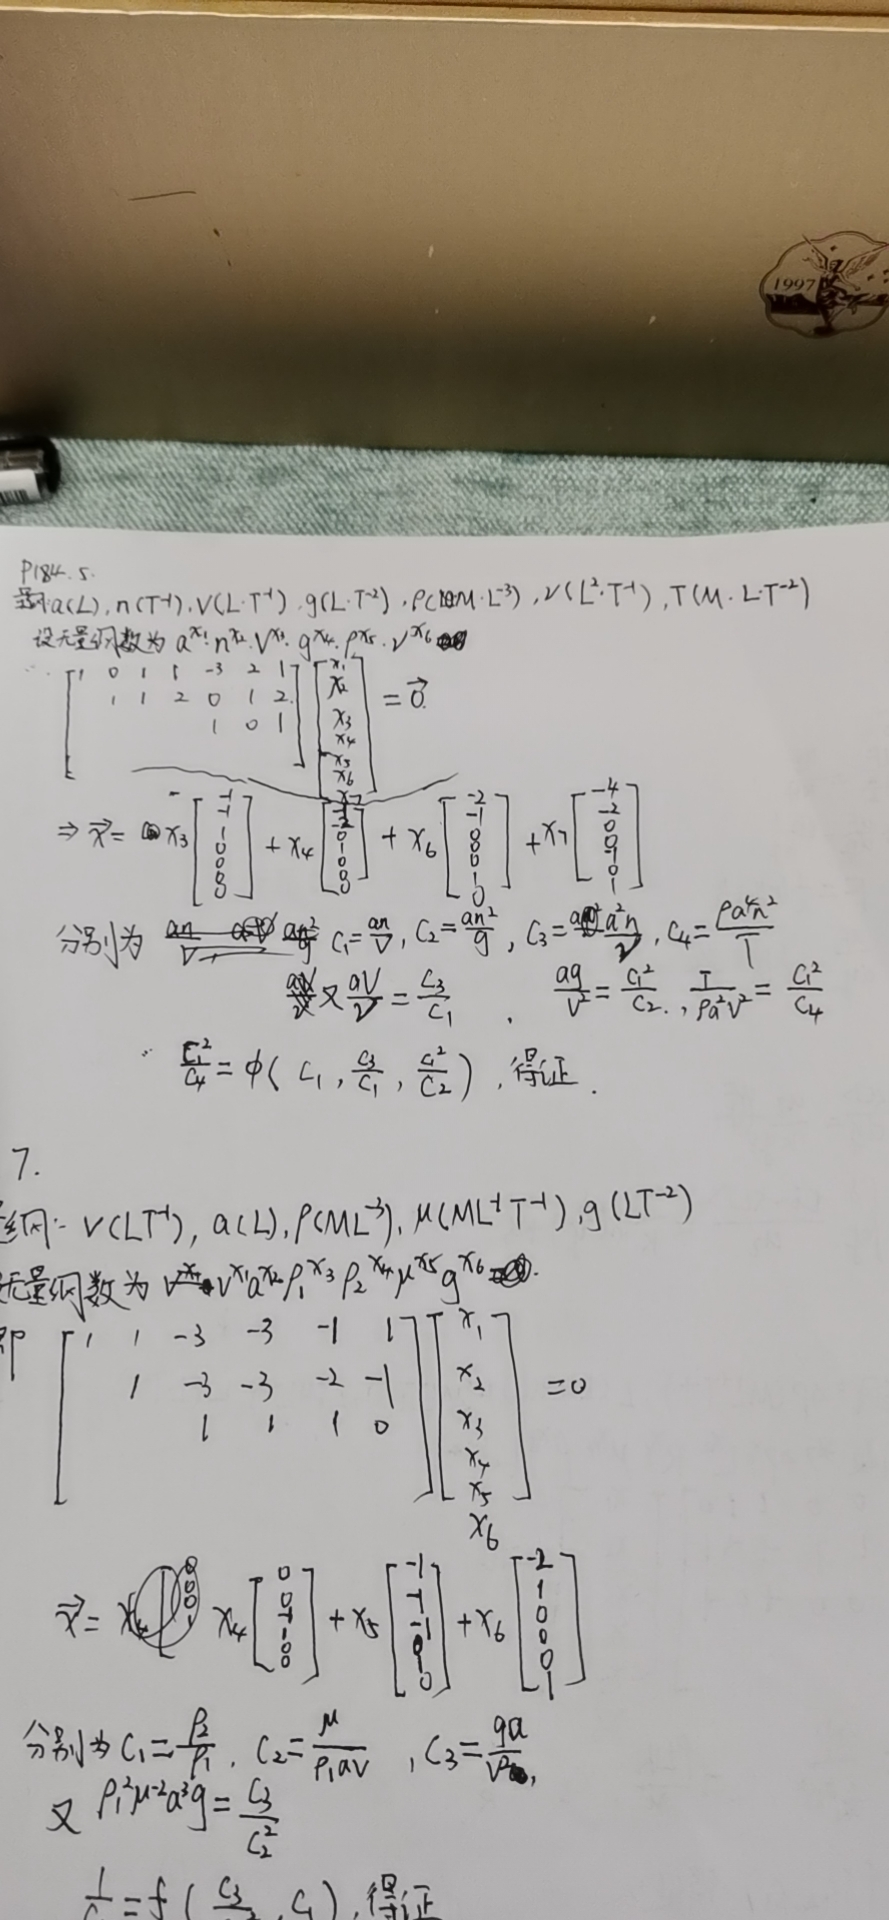 1997
P184.5.
量纲: a(L), n(T⁻¹), V(L·T⁻¹), g(L·T⁻²), ρ(M·L⁻³), ν(L²·T⁻¹), T(M·L·T⁻²)
设无量纲数为 a^x₁·n^x₂·V^x₃·g^x₄·ρ^x₅·ν^x₆
[1 0 1 1 -3 2 1; 1 1 2 0 1 2; 1 0 1] [x₁ x₂ x₃ x₄ x₅ x₆ x₇] = 0⃗.
⇒ x⃗ = x₃[-1 -1 1 0 0 0 0] + x₄[-1 -2 0 1 0 0 0] + x₆[-2 -1 0 0 0 1 0] + x₇[-4 -2 0 0 -1 0 1]
分别为 C₁=an/V, C₂=an²/g, C₃=a²n/ν, C₄=ρa⁴n²/T
又 aV/ν = C₃/C₁, ag/V² = C₁²/C₂, T/ρa²V² = C₁²/C₄
∴ C₁²/C₄ = φ(C₁, C₃/C₁, C₁²/C₂), 得证.
7.
纲: v(LT⁻¹), a(L), ρ(ML⁻³), μ(ML⁻¹T⁻¹), g(LT⁻²)
无量纲数为 v^x₁a^x₂ρ₁^x₃ρ₂^x₄μ^x₅g^x₆
即 [1 1 -3 -3 -1 1; 1 -3 -3 -2 -1; 1 1 1 0] [x₁ x₂ x₃ x₄ x₅ x₆] = 0
x⃗ = x₄[0 0 -1 1 0 0] + x₅[-1 -1 -1 0 1 0] + x₆[-2 1 0 0 0 1]
分别为 C₁=ρ₂/ρ₁, C₂=μ/ρ₁av, C₃=ga/v²,
又 ρ₁²μ⁻²a³g = C₃/C₂²
= f(C₃, C₁), 得证